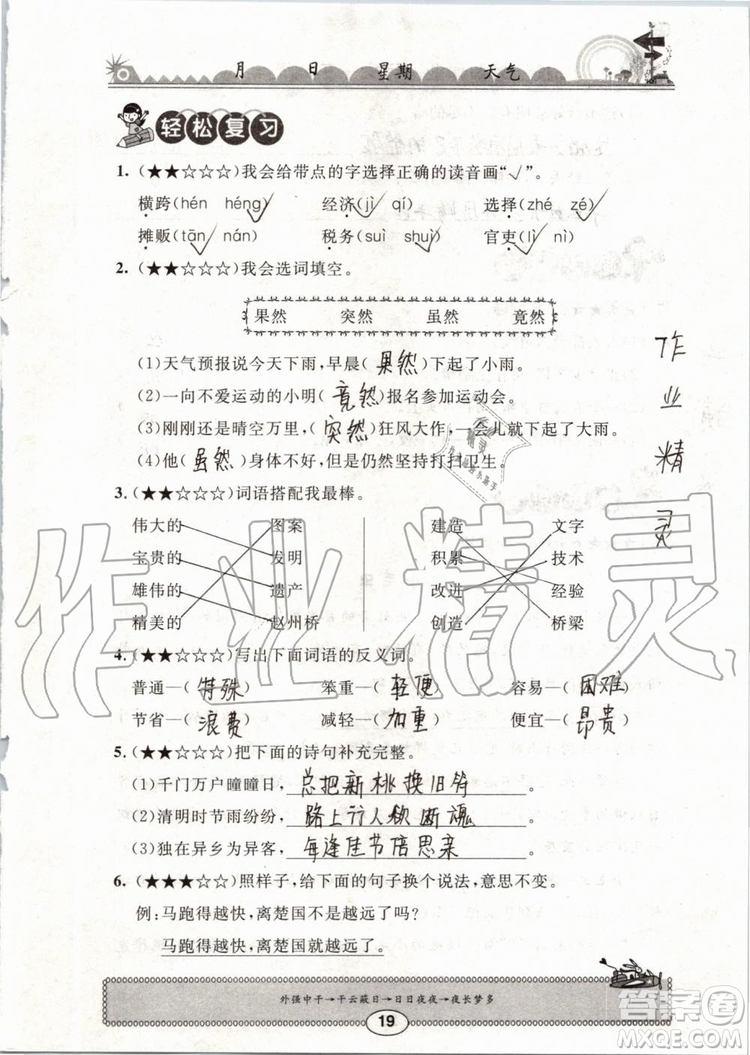 月 日 星期 天气
轻松复习
1.(★★☆☆☆)我会给带点的字选择正确的读音画“√”。
横跨(hén héng√) 经济(jì√ qí) 选择(zhé zé√)
摊贩(tān√ nán) 税务(suì shuì√) 官吏(lì√ nì)
2.(★★☆☆☆)我会选词填空。
果然 突然 虽然 竟然
(1)天气预报说今天下雨,早晨(果然)下起了小雨。
(2)一向不爱运动的小明(竟然)报名参加运动会。
(3)刚刚还是晴空万里,(突然)狂风大作,一会儿就下起了大雨。
(4)他(虽然)身体不好,但是仍然坚持打扫卫生。
作业精灵
3.(★★☆☆☆)词语搭配我最棒。
伟大的 图案 建造 文字
宝贵的 发明 积累 技术
雄伟的 遗产 改进 经验
精美的 赵州桥 创造 桥梁
4.(★★☆☆☆)写出下面词语的反义词。
普通—(特殊) 笨重—(轻便) 容易—(困难)
节省—(浪费) 减轻—(加重) 便宜—(昂贵)
5.(★★☆☆☆)把下面的诗句补充完整。
(1)千门万户曈曈日,总把新桃换旧符。
(2)清明时节雨纷纷,路上行人欲断魂。
(3)独在异乡为异客,每逢佳节倍思亲。
6.(★★★☆☆)照样子,给下面的句子换个说法,意思不变。
例:马跑得越快,离楚国不是越远了吗?
马跑得越快,离楚国就越远了。
外强中干→干云蔽日→日日夜夜→夜长梦多
19
作业精灵
答案圈
MXQE.COM